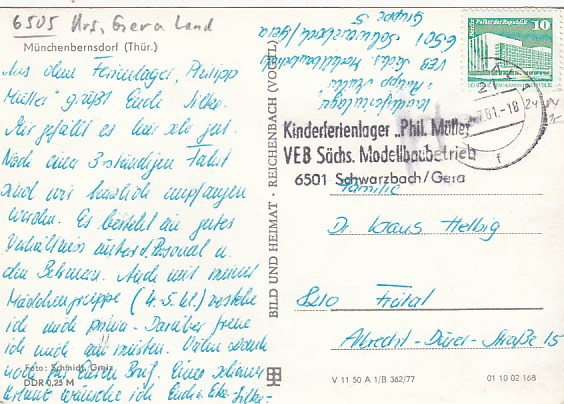 6505 Krs. Gera Land
Münchenbernsdorf (Thür.)
Aus dem Ferienlager „Philipp
Müller" grüßt Euch Silke.
Mir gefällt es hier sehr gut.
Nach einer 3stündigen Fahrt
sind wir herzlich empfangen
worden. Es besteht ein gutes
Verhältnis unter d. Personal u.
den Helfern. Auch mit meiner
Mädchengruppe (4.-5. Kl.) verstehe
ich mich prima. Darüber freue
ich mich am meisten. Vielen Dank
noch für Euren Brief. Einen schönen
Urlaub wünsche ich Euch. Eure Silke-
Foto: Schmidt, Greiz
DDR 0,25 M
BILD UND HEIMAT · REICHENBACH (VOGTL)
Kinderferienlager
"Philipp Müller"
VEB Sächs. Modellbaubetrieb
6501 Schwarzbach/Gera
Gruppe 5
Berlin Palast der Republik
10
DEUTSCHE DEMOKRATISCHE REPUBLIK
7.81.-18
f
Kinderferienlager „Phil. Müller"
VEB Sächs. Modellbaubetrieb
6501 Schwarzbach/Gera
Familie
Dr. Klaus Helbig
8210 Freital
Albrecht-Dürer-Straße 15
V 11 50 A 1/B 362/77
01 10 02 168